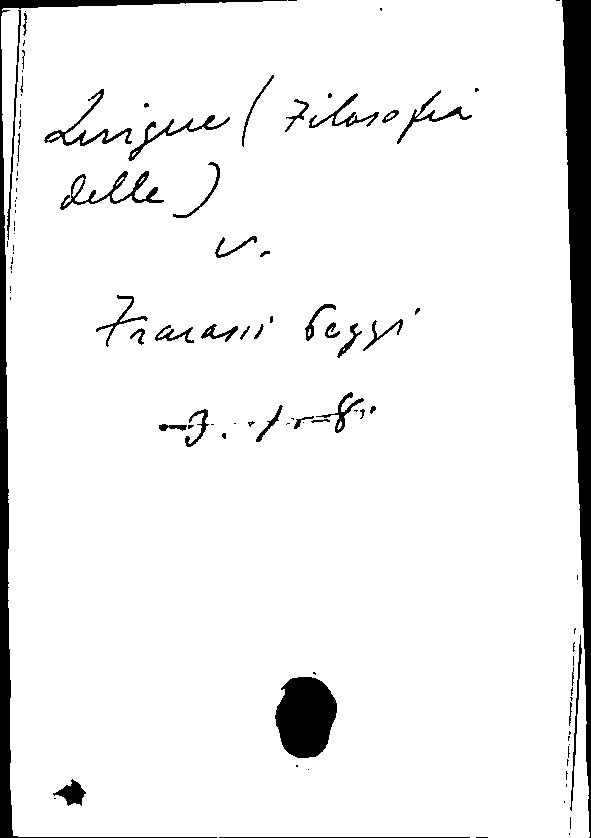 Lingue (Filosofia
delle)
v.
Fracassi Poggi
3. 1. 8.